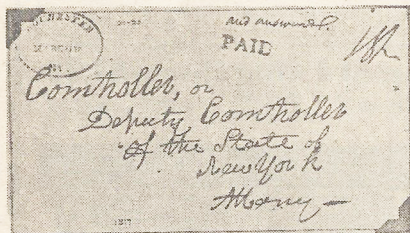 and answered.
PAID
Comtroller, or
Deputy Comtroller
of the State of
New York
Albany